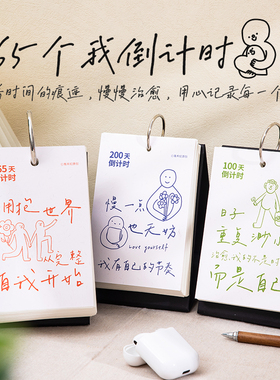 65个我倒计时
时间的痕迹，慢慢治愈，用心记录每一个
65天
倒计时
用抱世界
从完整
自我开始
200天
倒计时
慢一点
也无妨
Love yourself
我有自己的节奏
100天
倒计时
重复
治愈我的不是时
而是自己